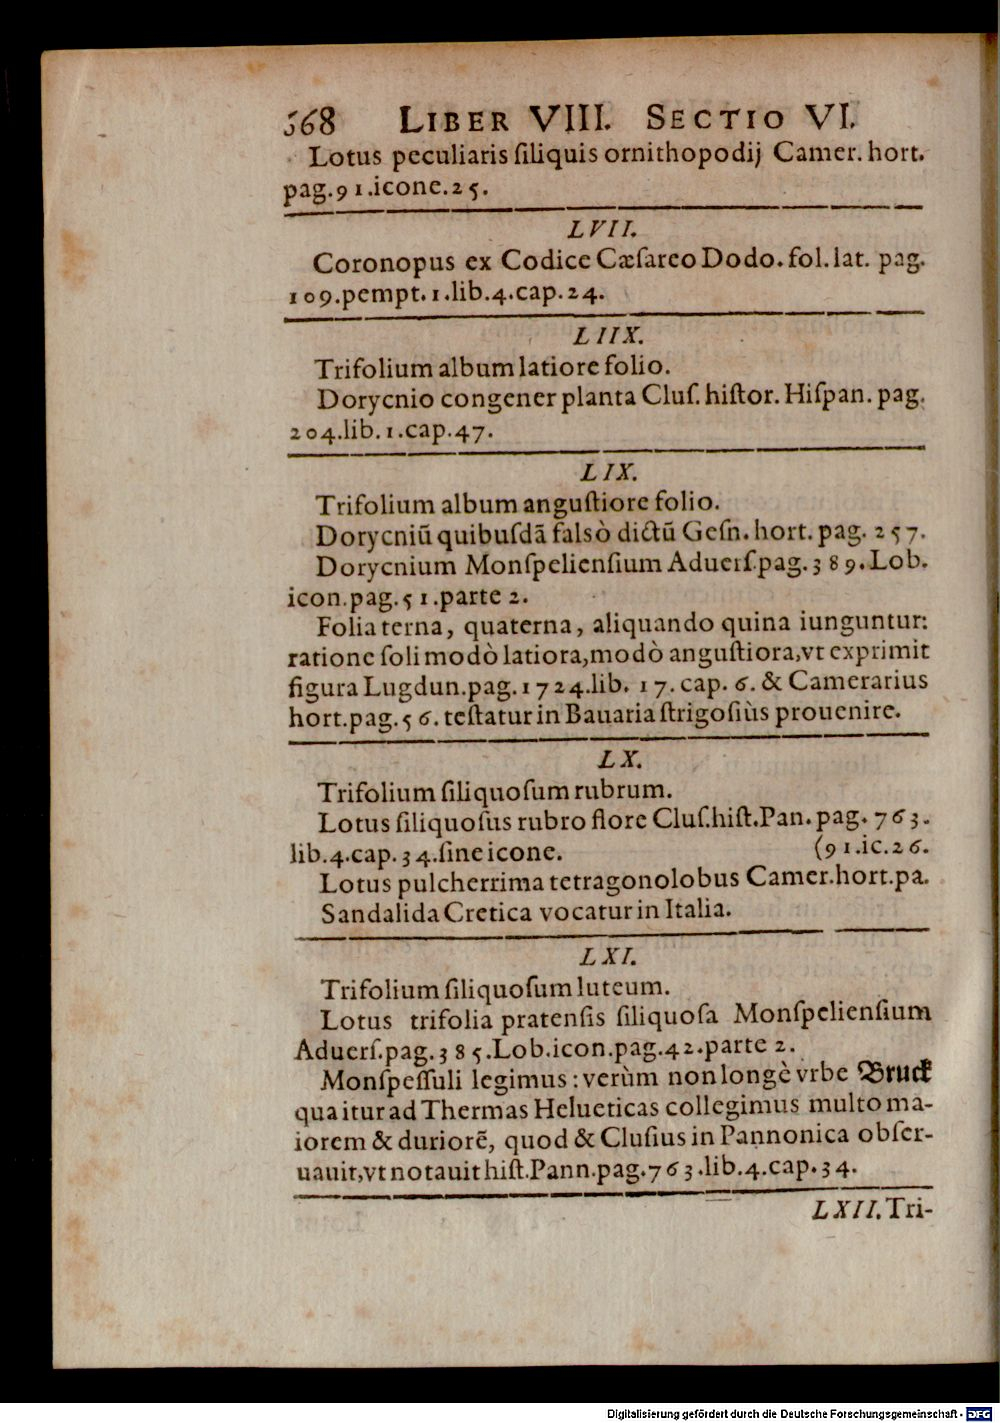 568 LIBER VIII. SECTIO VI.
Lotus peculiaris ſiliquis ornithopodij Camer. hort.
pag.91.icone.25.
LVII.
Coronopus ex Codice Cæſareo Dodo. fol. lat. pag.
109.pempt.1.lib.4.cap.24.
LIIX.
Trifolium album latiore folio.
Dorycnio congener planta Cluſ. hiſtor. Hiſpan. pag.
204.lib.1.cap.47.
LIX.
Trifolium album anguſtiore folio.
Dorycniū quibuſdā falsò dictū Geſn. hort. pag. 257.
Dorycnium Monſpelienſium Aduerſ.pag.389.Lob.
icon.pag.51.parte 2.
Folia terna, quaterna, aliquando quina iunguntur:
ratione ſoli modò latiora,modò anguſtiora,vt exprimit
figura Lugdun.pag.1724.lib. 17. cap. 6. & Camerarius
hort.pag.56. teſtatur in Bauaria ſtrigoſiùs prouenire.
LX.
Trifolium ſiliquoſum rubrum.
Lotus ſiliquoſus rubro flore Cluſ.hiſt.Pan.pag.763.
lib.4.cap.34.ſine icone. (91.ic.26.
Lotus pulcherrima tetragonolobus Camer.hort.pa.
Sandalida Cretica vocatur in Italia.
LXI.
Trifolium ſiliquoſum luteum.
Lotus trifolia pratenſis ſiliquoſa Monſpelienſium
Aduerſ.pag.385.Lob.icon.pag.42.parte 2.
Monſpeſſuli legimus : verùm non longè vrbe Bruck
qua itur ad Thermas Helueticas collegimus multo ma-
iorem & duriorē, quod & Cluſius in Pannonica obſer-
uauit,vt notauit hiſt.Pann.pag.763.lib.4.cap.34.
LXII.Tri-
Digitalisierung gefördert durch die Deutsche Forschungsgemeinschaft - DFG